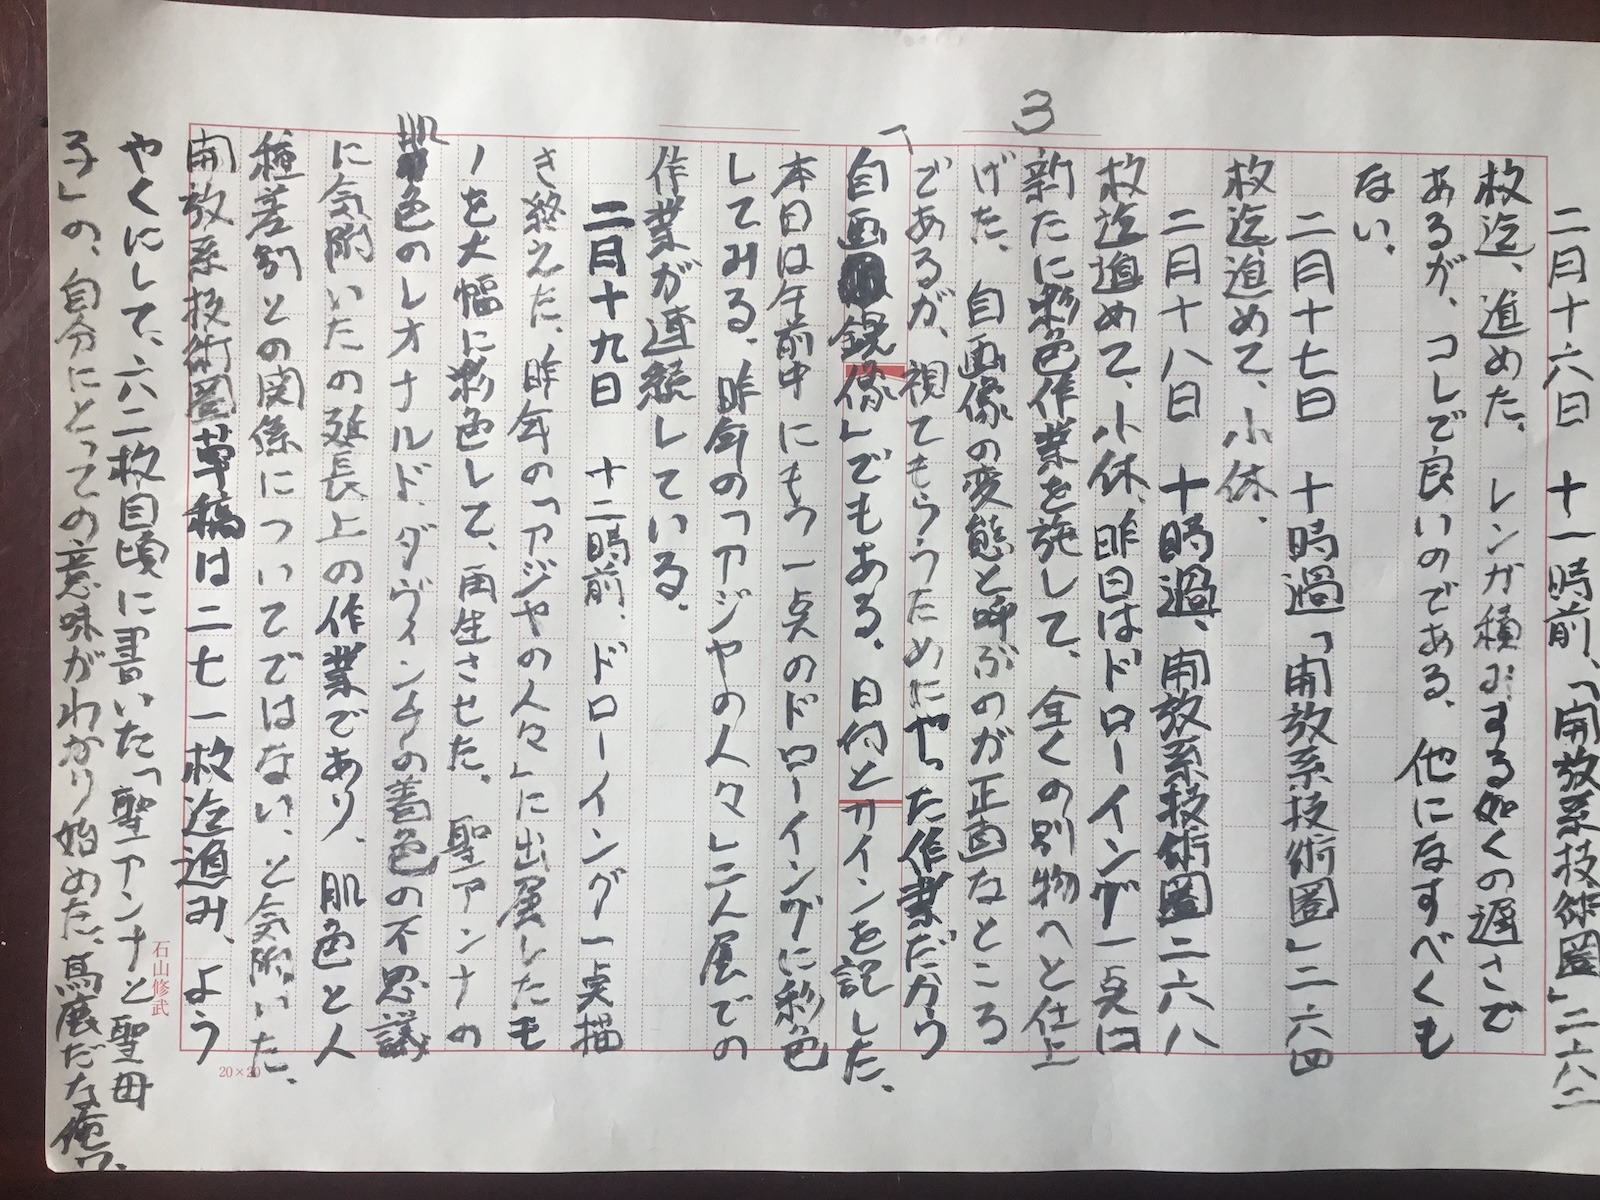 3
二月十六日　十一時前、「開放系技術圏」二六二
枚迄、進めた。レンガ積みする如くの遅さで
あるが、コレで良いのである。他になすべくも
ない。
二月十七日　十時過「開放系技術圏」二六四
枚迄進めて、小休。
二月十八日　十時過、開放系技術圏二六八
枚迄進めて、小休、昨日はドローイング一点に
新たに彩色作業を施して、全くの別物へと仕上
げた。自画像の変態と呼ぶのが正直なところ
であるが、視てもらうためにやった作業だから
「自画鏡像」でもある。日付とサインを記した。
本日は午前中にもう一点のドローイングに彩色
してみる。昨年の「アジヤの人々」二人展での
作業が連続している。
二月十九日　十二時前、ドローイング一点描
き終えた、昨年の「アジヤの人々」に出展したモ
ノを大幅に彩色して、再生させた。聖アンナの
肌色のレオナルド・ダヴィンチの着色の不思議
に気附いたの延長上の作業であり、肌色と人
種差別との関係についてではない、と気附いた。
開放系技術圏草稿は二七一枚迄進み、よう
やくにして、六二枚目頃に書いた「聖アンナと聖母
子」の、自分にとっての意味がわかり始めた。馬鹿だな俺ワ。
石山修武
20×20